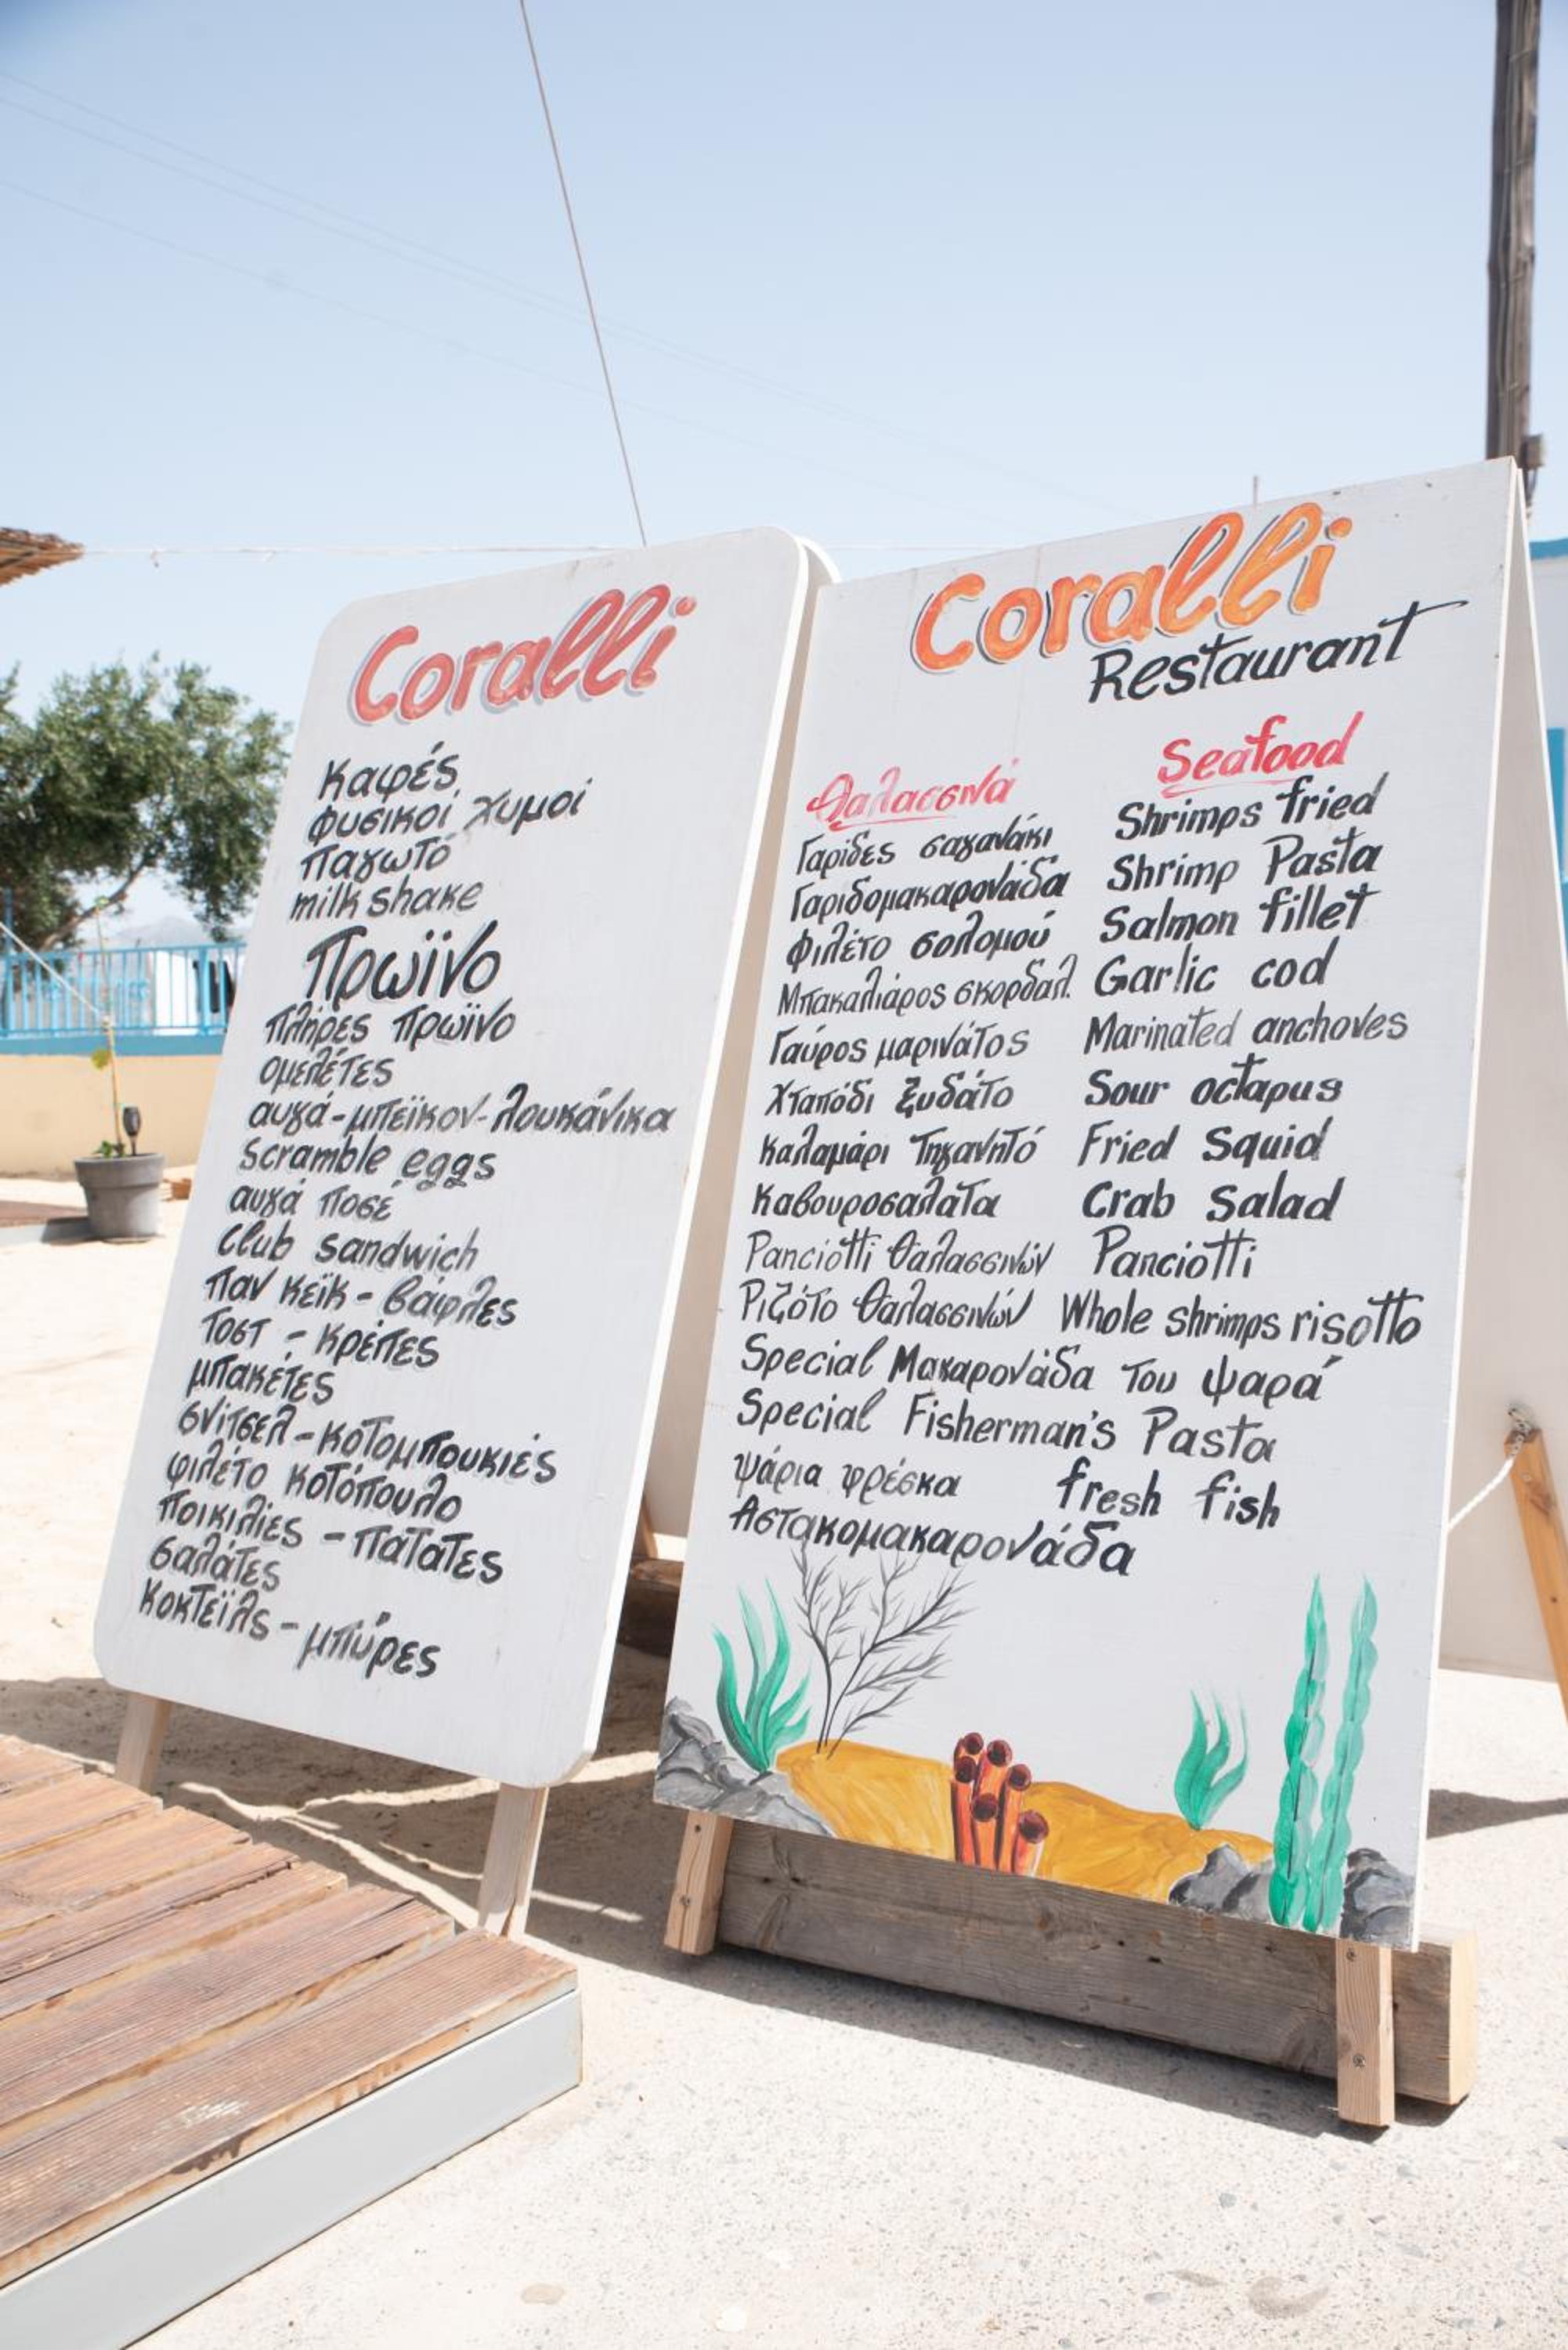 Coralli
Καφές
φυσικοί χυμοί
παγωτό
milk shake
Πρωϊνο
πλήρες πρωϊνο
ομελέτες
αυγά-μπεϊκον-λουκάνικα
Scramble eggs
αυγά ποσέ
Club sandwich
παν κεϊκ - βάφλες
τοστ - κρέπες
μπακέτες
σνίτσελ-κοτομπουκιές
φιλέτο κοτόπουλο
ποικιλίες - πατάτες
σαλάτες
κοκτεϊλς - μπύρες
Coralli
Restaurant
Θαλασσινά
Γαρίδες σαγανάκι
Γαριδομακαρονάδα
Φιλέτο σολομού
Μπακαλιάρος σκορδαλ.
Γαύρος μαρινάτος
Χταπόδι ξυδάτο
Καλαμάρι τηγανητό
Καβουροσαλατα
Panciotti θαλασσινών
Ριζότο θαλασσινών
Seafood
Shrimps fried
Shrimp Pasta
Salmon fillet
Garlic cod
Marinated anchoves
Sour octapus
Fried Squid
Crab Salad
Panciotti
Whole shrimps risotto
Special Μακαρονάδα του ψαρά
Special Fisherman's Pasta
ψάρια φρέσκα fresh fish
Αστακομακαρονάδα